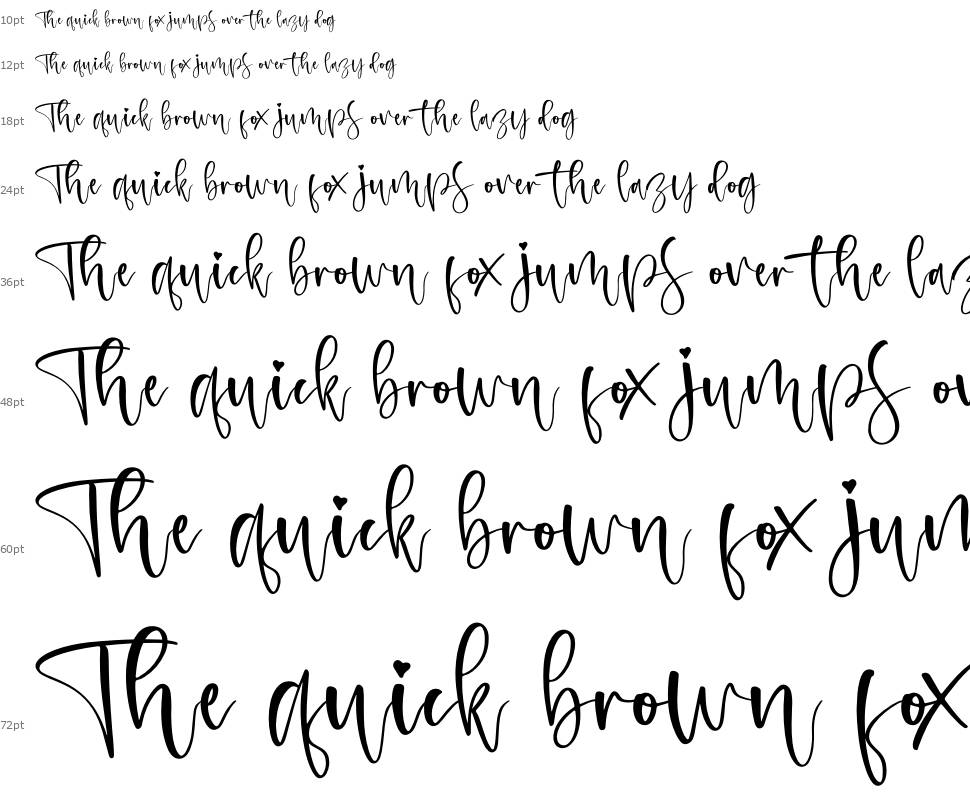 10pt The quick brown fox jumps over the lazy dog
12pt The quick brown fox jumps over the lazy dog
18pt The quick brown fox jumps over the lazy dog
24pt The quick brown fox jumps over the lazy dog
36pt The quick brown fox jumps over the laz
48pt The quick brown fox jumps ov
60pt The quick brown fox jum
72pt The quick brown fox